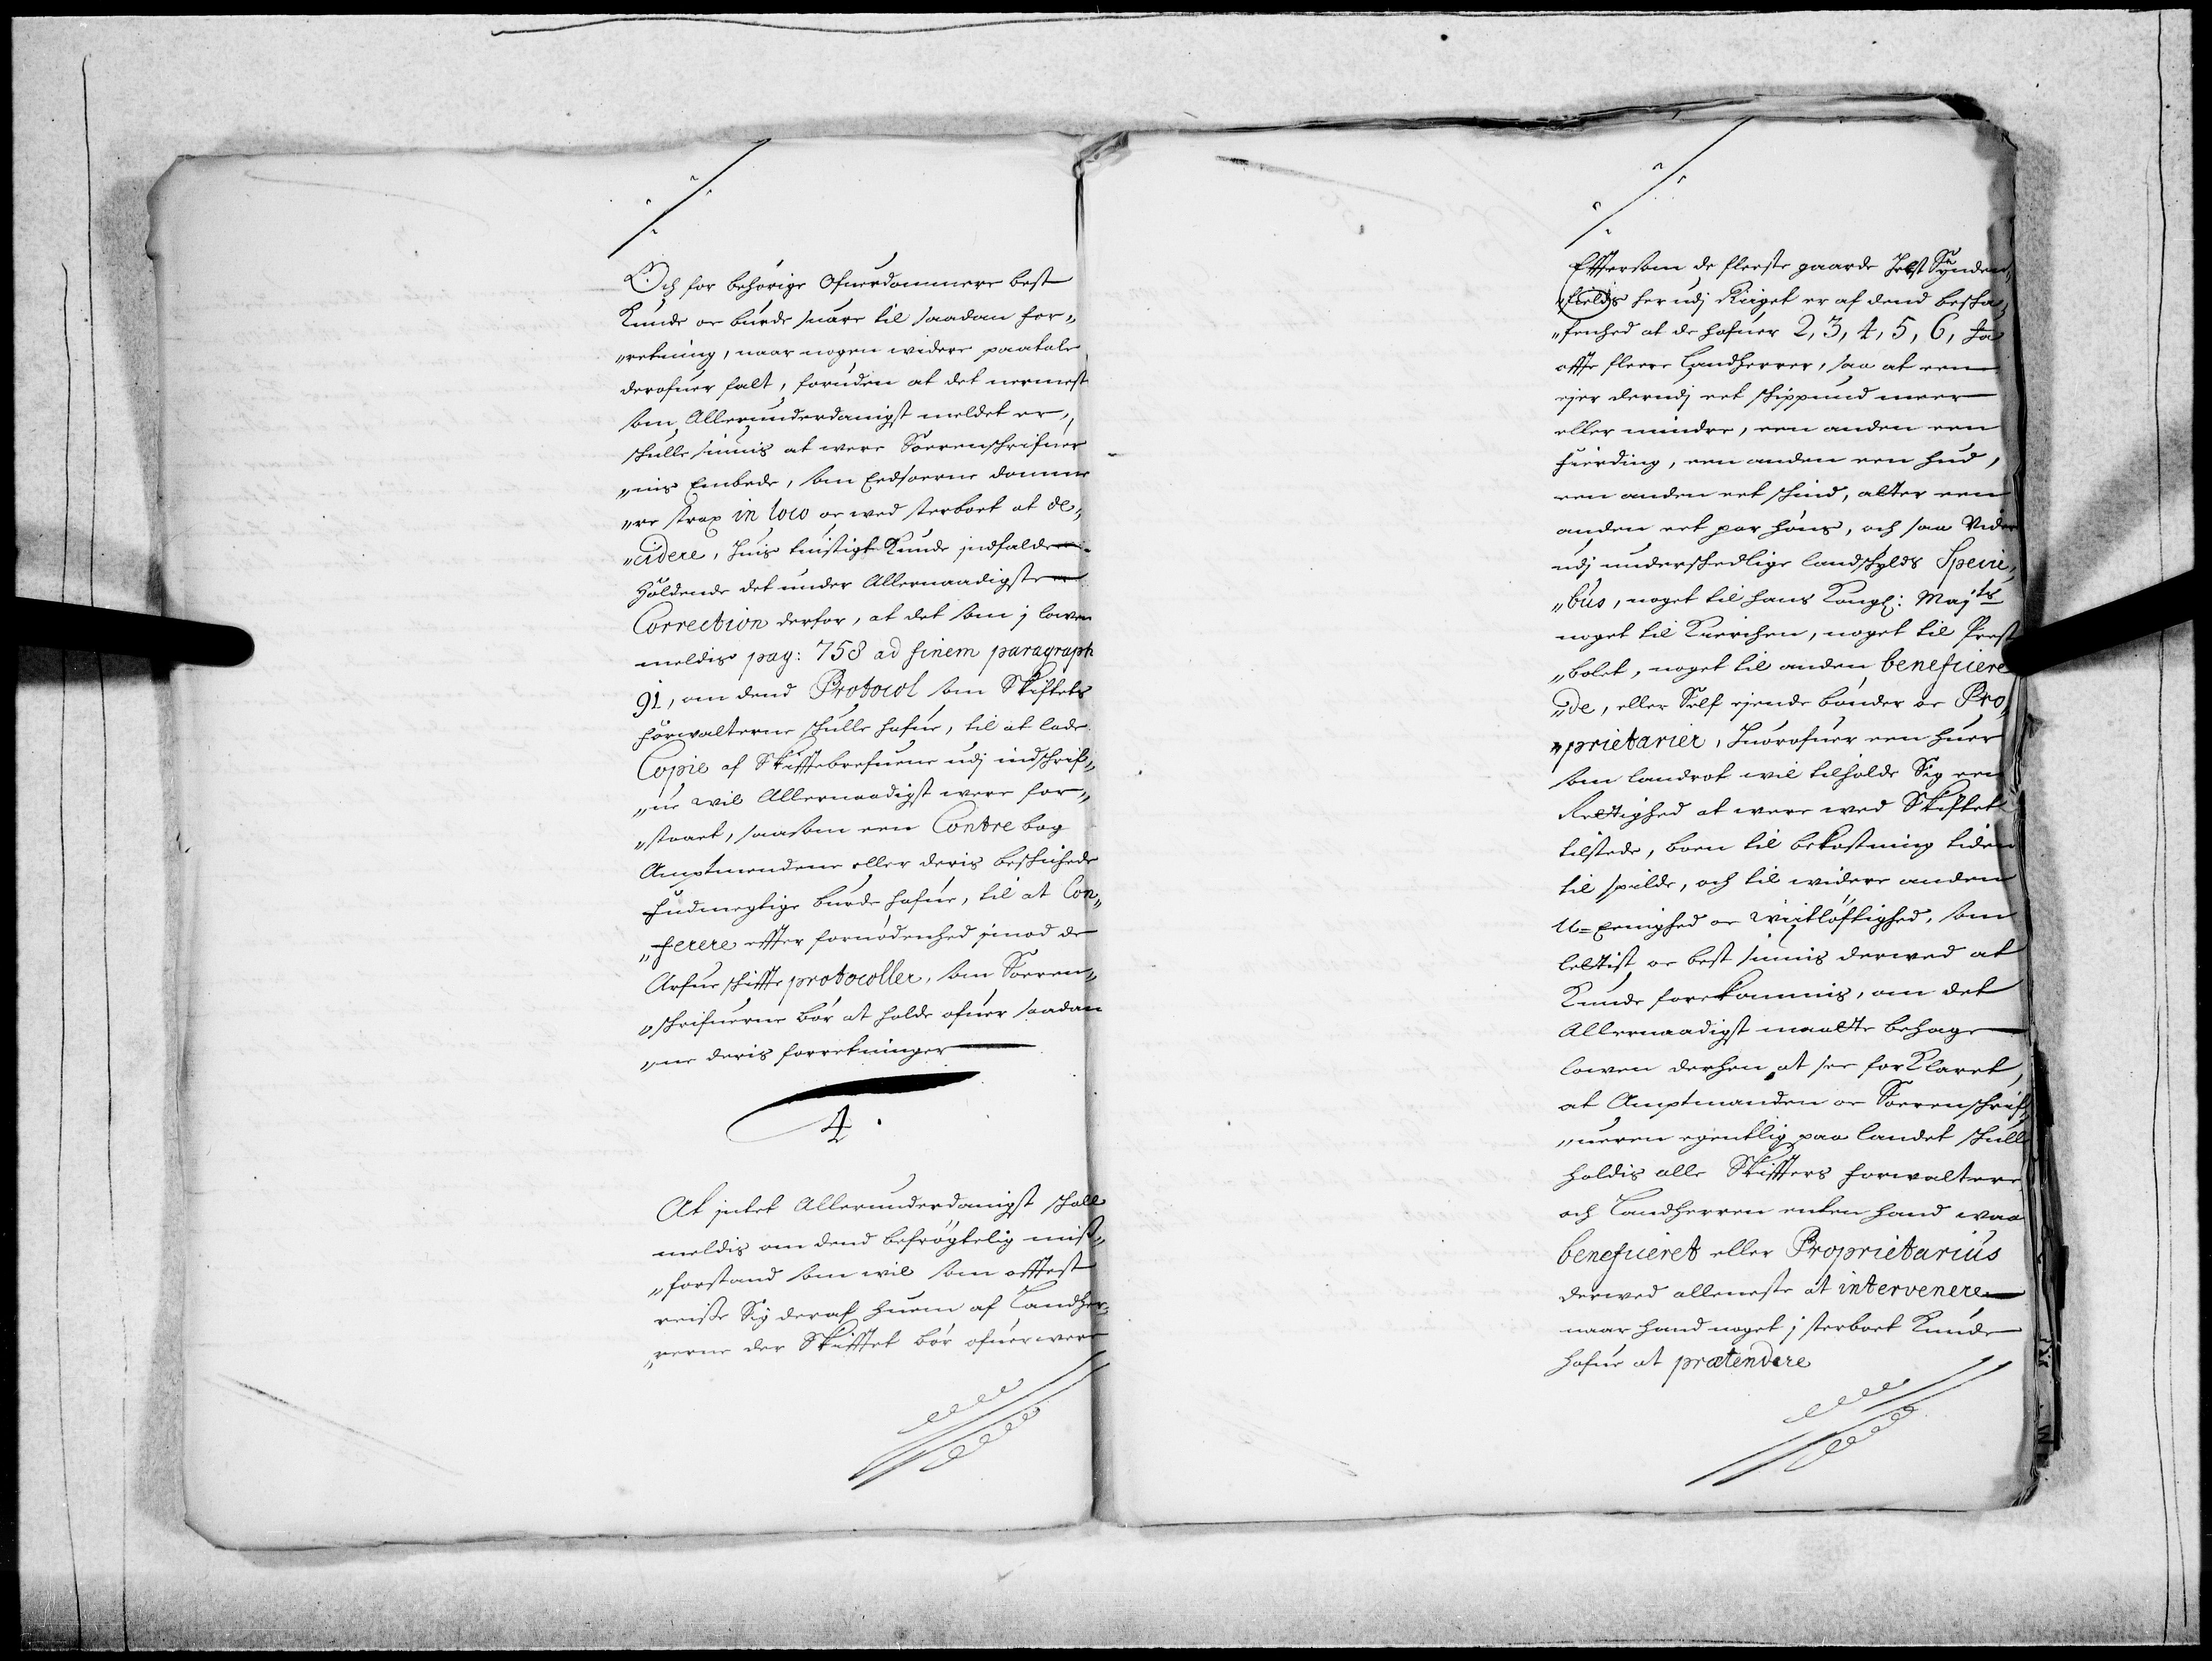 Och for behörige Ofuerdommere best
Kunde oc burde suare til saadan for„
„retning, naar nogen widere paatale
derofuer falt, foruden at det nermest
som Allerunderdanigst meldet er,
skulle siunis at were Sorenschrifuer
„nis Embede, som Eedsorne domme
„re strax in loco oc wed sterboet at de„
„cidere, huis tuistigt Kunde indfalde
Holdende det under Allernaadigste
Correction derfor, at det som j lowen
meldis pag: 758 ad finem paragraph
91, om dend Protocol som Skiftets
forwalterne skulle hafue, til at lade
Copie af Skifftebrefuene udj indschrif„
„ue wil Allernaadigst were for„
„staaet, saasom een Contre bog
Amptmendene eller deris beskickede
fuldmegtige burde hafue, til at Con„
„ferere effter fornödenhed imod de
Arfue skiffte protocoller, som Soren„
„schrifuerne bör at holde ofuer saadan
„ne deris forretninger
4.
At intet Allerunderdanigst skall
meldis om dend befrögtelig miß„
„forstand som wil som offtest
reiße Sig deraf huem af Landher„
„rerne der Skifftet bör ofuerwere
Efftersom de fleeste gaarde Synden„
„fields her udj Riiget er af dend beska„
„fenhed at de hafuer 2, 3, 4, 5, 6, Ja
offte fleere Landherrer, saa at een
ejer derudj eet skippund meer
eller mindre, een anden een
fierding, een anden een hud,
een anden eet skind, alter een
anden eet par höns, och saa Vider
udj underskedlige landskylds Speci„
„bus, noget til hans Kongl: Majts
noget til Kierchen, noget til Prest
„bolet, noget til anden beneficiere
„de, eller Self ejende bönder oc Pro„
„prietarier, huorofuer een huer
som landrot wil tilholde Sig een
Rettighed at were wed Skiftet
tilstede, boen til bekostning tiden
til spilde, och til widere anden
U=Eenighed oc Vijtlöftighed, som
lettist oc best siunis derwed at
Kunde forekommis, om det
Allernaadigst maatte behage
lowen derhen at see forKlaret,
at Amptmanden oc Sorenschrif„
„ueren egentlig paa landet skulle
holdis alle Skiffters forwaltere
och Landherren enten hand waa
beneficieret eller Proprietarius
derwed alleneste at intervenere
naar hand noget j sterboet Kunde
hafue at prætendere